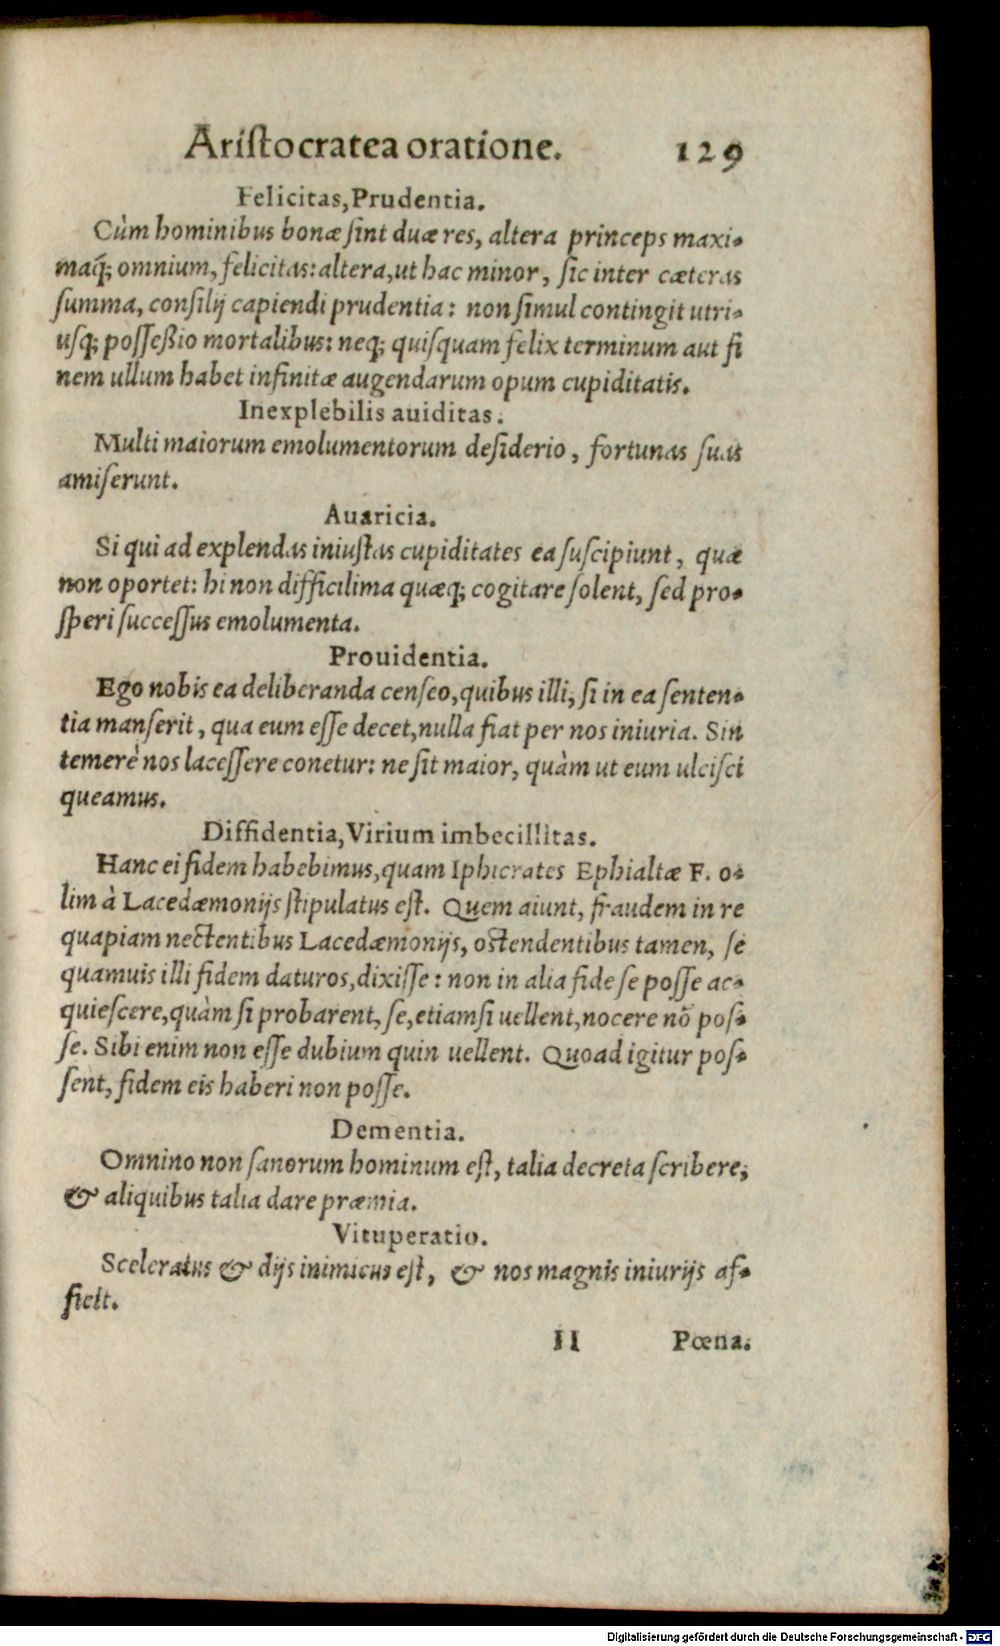 Aristocratea oratione. 129
Felicitas, Prudentia.
Cùm hominibus bonæ sint duæ res, altera princeps maxi-
maq́; omnium, felicitas: altera, ut hac minor, sic inter cæteras
summa, consilij capiendi prudentia: non simul contingit utri-
usq; possessio mortalibus: neq; quisquam felix terminum aut fi
nem ullum habet infinitæ augendarum opum cupiditatis.
Inexplebilis auiditas.
Multi maiorum emolumentorum desiderio, fortunas suas
amiserunt.
Auaricia.
Si qui ad explendas iniustas cupiditates ea suscipiunt, quæ
non oportet: hi non difficilima quæq; cogitare solent, sed pro-
speri successus emolumenta.
Prouidentia.
Ego nobis ea deliberanda censeo, quibus illi, si in ea senten-
tia manserit, qua eum esse decet, nulla fiat per nos iniuria. Sin
temerè nos lacessere conetur: ne sit maior, quàm ut eum ulcisci
queamus.
Diffidentia, Virium imbecillitas.
Hanc ei fidem habebimus, quam Iphicrates Ephialtæ F. o-
lim à Lacedæmonijs stipulatus est. Quem aiunt, fraudem in re
quapiam nectentibus Lacedæmonijs, ostendentibus tamen, se
quamuis illi fidem daturos, dixisse: non in alia fide se posse ac-
quiescere, quàm si probarent, se, etiamsi uellent, nocere nō pos-
se. Sibi enim non esse dubium quin uellent. Quoad igitur pos-
sent, fidem eis haberi non posse.
Dementia.
Omnino non sanorum hominum est, talia decreta scribere,
& aliquibus talia dare præmia.
Vituperatio.
Sceleratus & dijs inimicus est, & nos magnis iniurijs af-
ficit.
II Pœna.
Digitalisierung gefördert durch die Deutsche Forschungsgemeinschaft - DFG